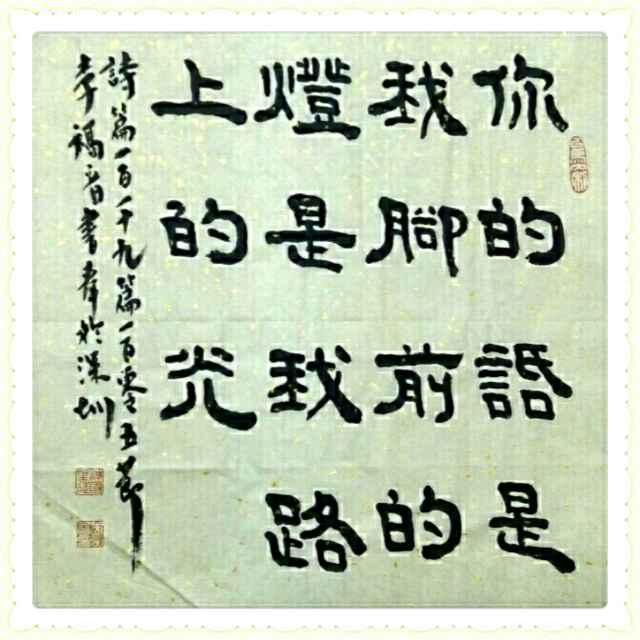 你的話是
我腳前的
燈是我路
上的光
詩篇一百一十九篇一百零五節
李福音書奉於深圳